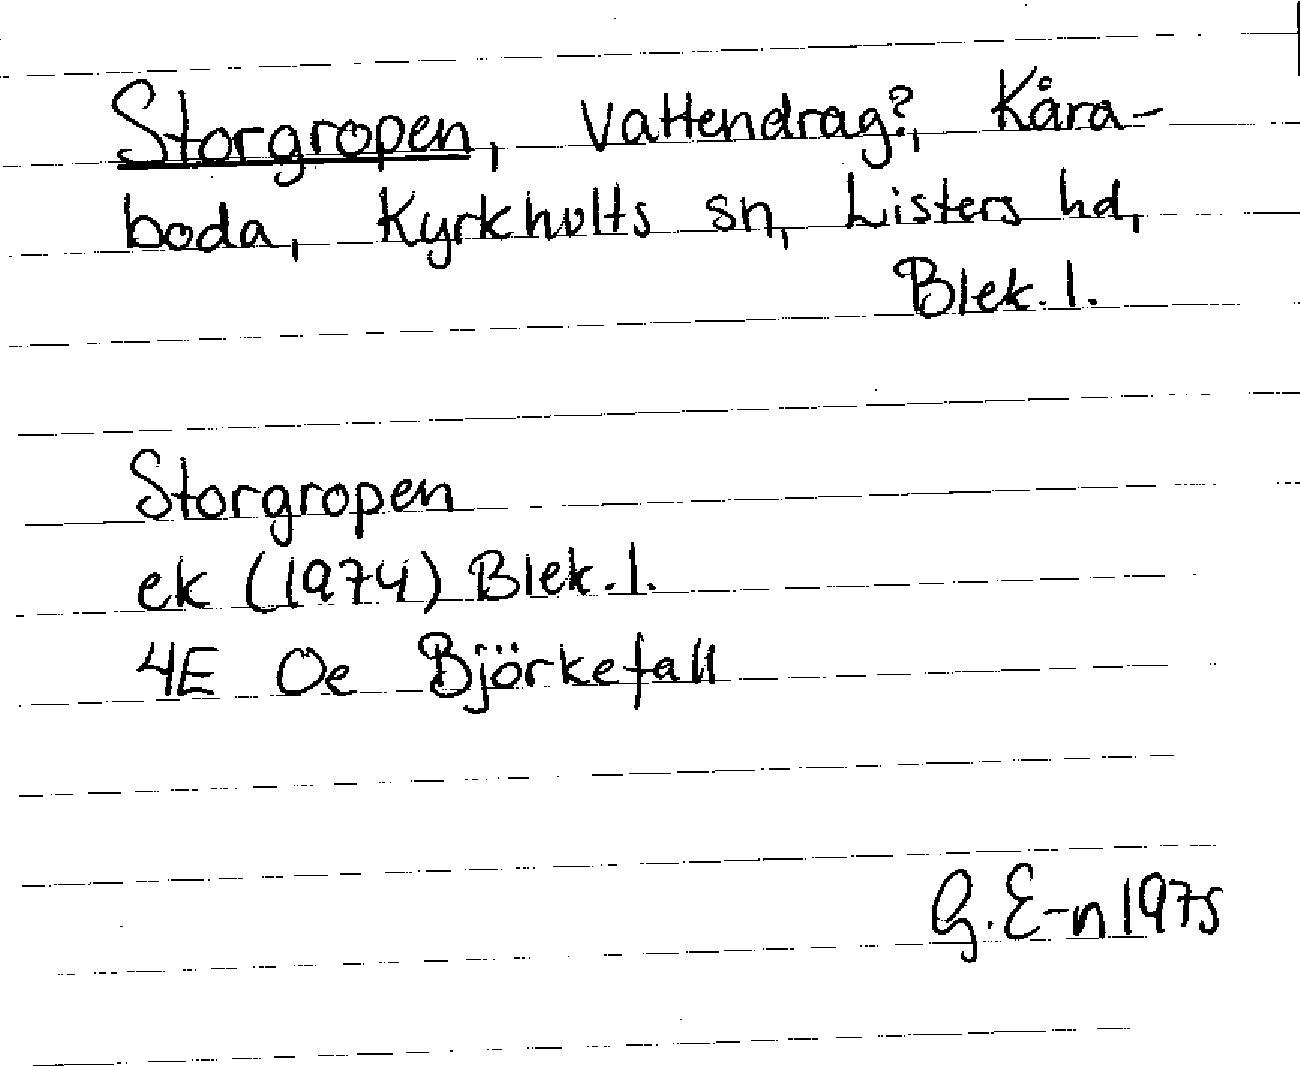 Storgropen, Vattendrag?, Kåra-
boda, Kyrkhults sn, Listers hd,
Blek. l.
Storgropen
ek (1974) Blek. l.
4E Oe Björkefall
G. E-n 1975